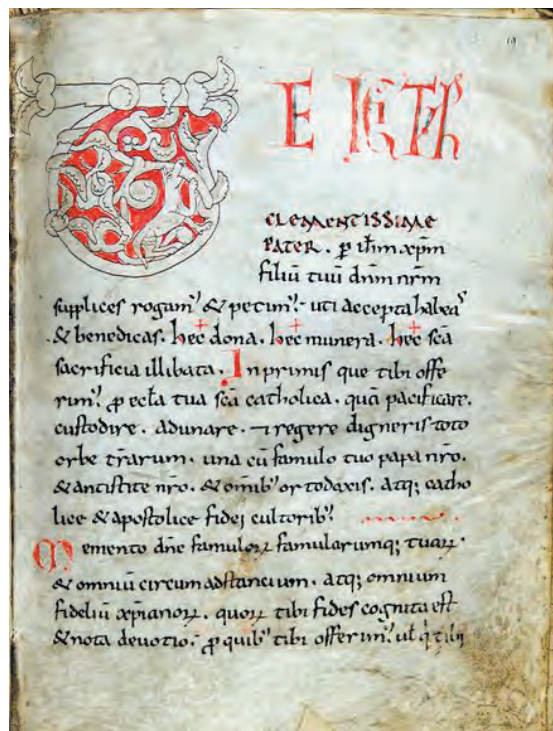 19
TE IGIT̃
CLEMENTISSIME
PATER . ꝑ ihm̄ xp̄m
filiū tuū dn̄m nr̄m
supplices rogam᾽ & petim᾽ . uti accepta habeas
& benedicas . hec ✝ dona . hec ✝ munera . hec ✝ sc̄a
sacrificia illibata . In primis que tibi offe
rim᾽ . ꝓ eccła tua sc̄a catholica . quā pacificare .
custodire . adunare . ⁊ regere digneris toto
orbe tr̄arum . una cū famulo tuo papa nr̄o .
& antistite nr̄o . & omīb᾽ ortodoxis . atq; catho
lice & apostolice fidei cultorib᾽
Memento dn̄e famuloꝝ famularumq; tuaꝝ .
& omniū circum adstancium . atq; omnium
fideliū xp̄ianoꝝ . quoꝝ tibi fides cognita est
& nota deuotio . ꝓ quib᾽ tibi offerim᾽ . uł q̇ tibi